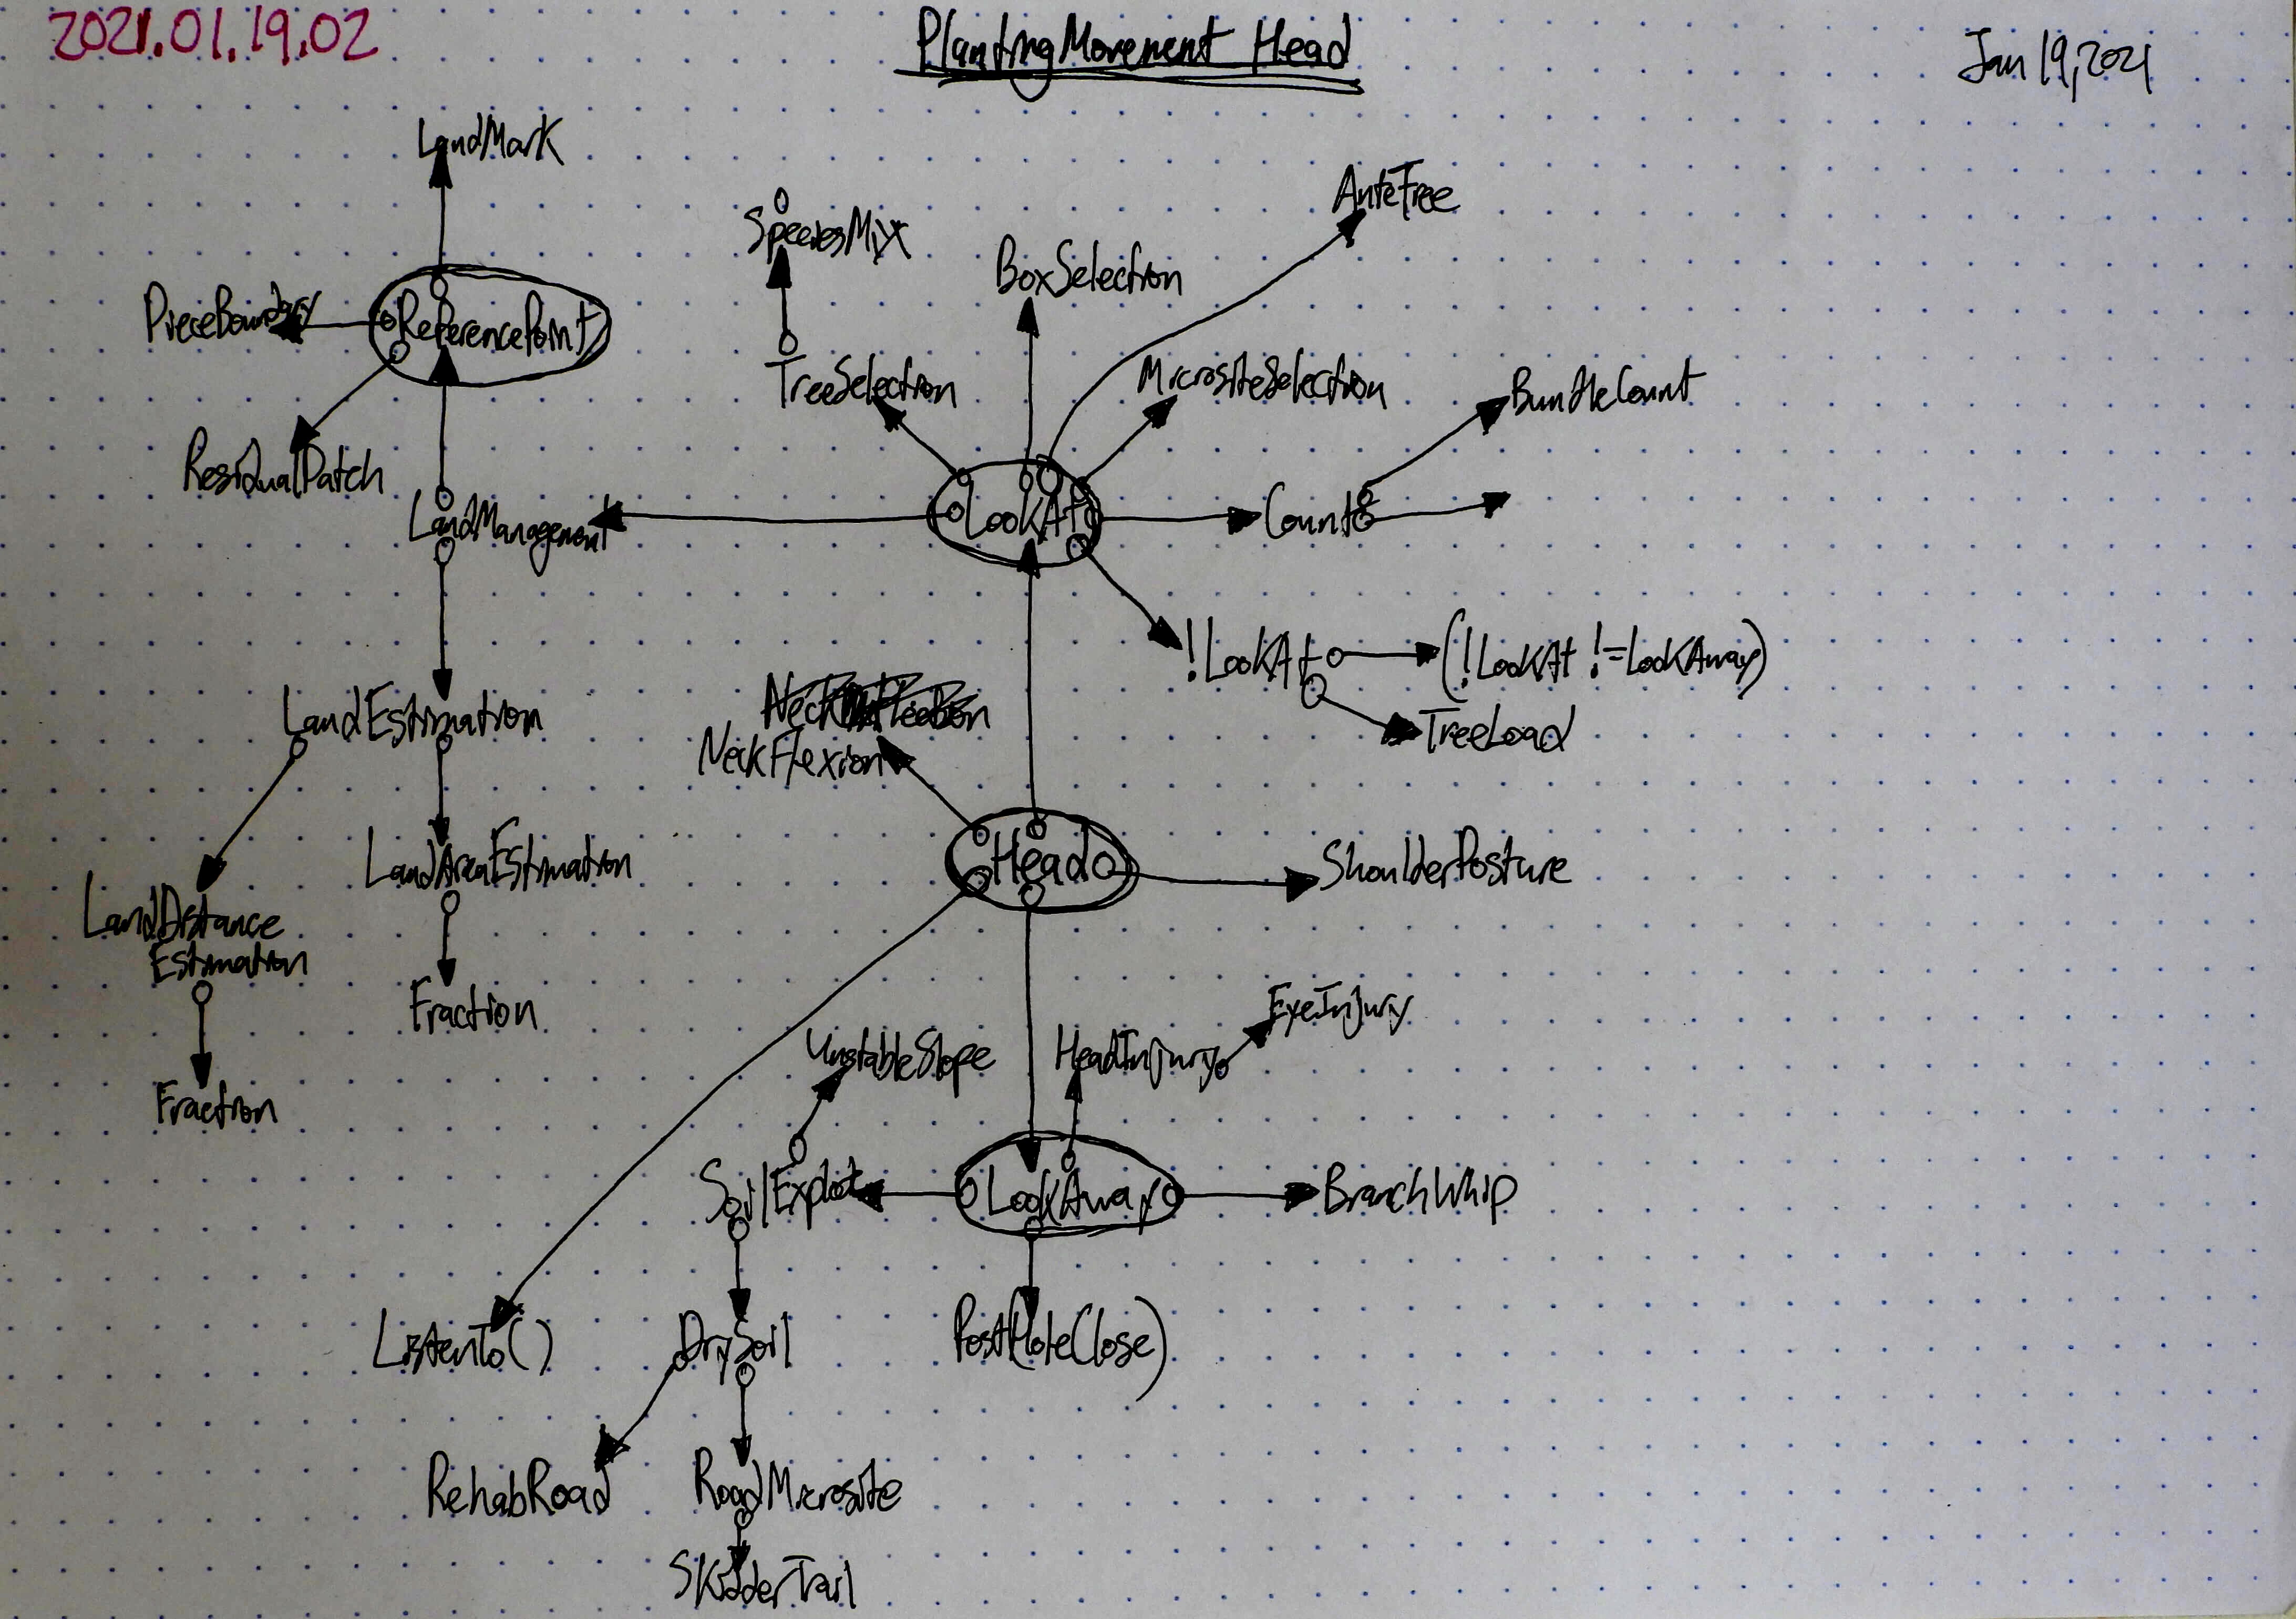 2021.01.19.02
PlantingMovement Head
Jan 19, 2021
LandMark
AnteTree
SpeciesMix
BoxSelection
PieceBoundary
ReferencePoint
TreeSelection
MicrositeSelection
BundleCount
ResidualPatch
LandManagement
LookAt
Count
!LookAt
(!LookAt != LookAway)
TreeLoad
LandEstimation
NeckFlexion
LandAreaEstimation
Head
ShoulderPosture
LandDistance
Estimation
Fraction
EyeInjury
UnstableSlope
HeadInjury
Fraction
SoilExplot
LookAway
BranchWhip
ListenTo()
DrySoil
RehabRoad
RoadMicrosite
SkidderTrail